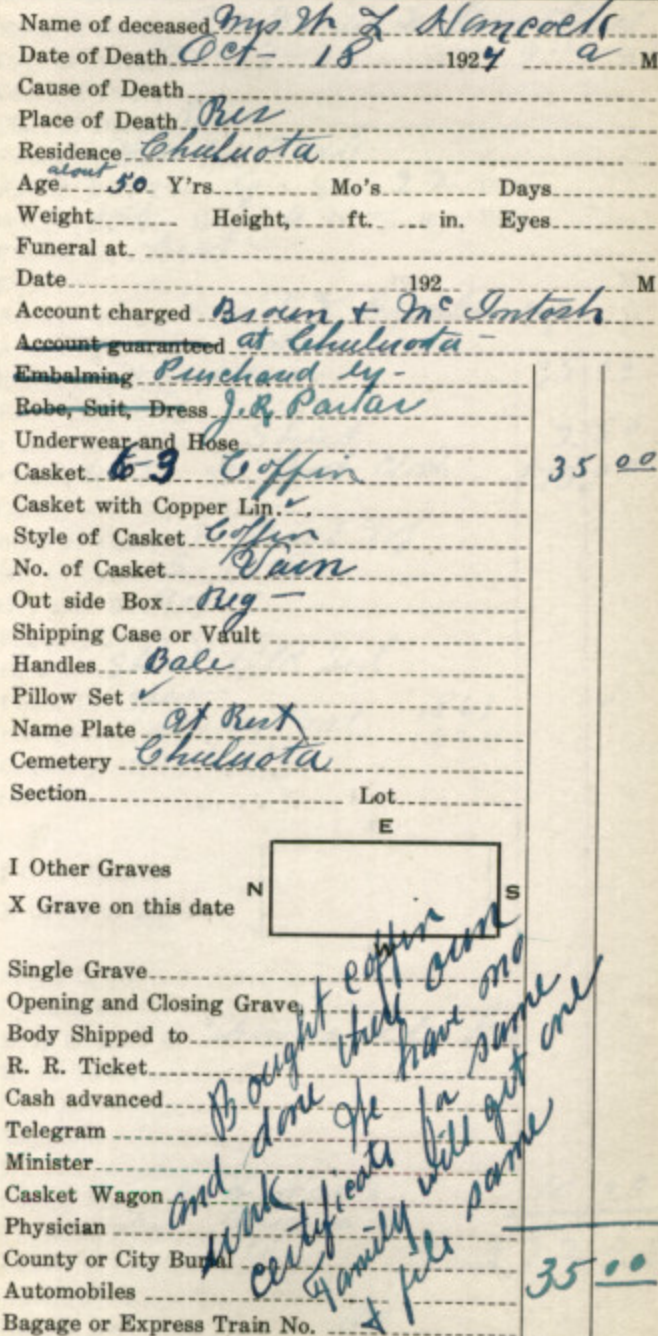 Name of deceased Mrs W L Hancock
Date of Death Oct - 18 1927 a M
Cause of Death
Place of Death Res
Residence Chuluota
Age about 50 Y'rs. Mo's. Days
Weight Height, ft. in. Eyes
Funeral at
Date 192 M
Account charged Brown + Mc Intosh
Account guaranteed at Chuluota -
Embalming Purchased by -
Robe, Suit, Dress J.R.
Underwear and Hose
Casket Coffin 35 00
Casket with Copper Lin. ✓
Style of Casket Coffin
No. of Casket
Out side Box Reg —
Shipping Case or Vault
Handles Bale
Pillow Set ✓
Name Plate At Rest
Cemetery Chuluota
Section Lot
E
I Other Graves
N S
X Grave on this date
Single Grave
Opening and Closing Grave
Body Shipped to
R. R. Ticket
Cash advanced
Telegram
Minister
Casket Wagon
Physician
County or City Burial 35 00
Automobiles
Bagage or Express Train No.
Bought coffin
and done there own
work. We have no
certificate for same
Family will get one
+ file same